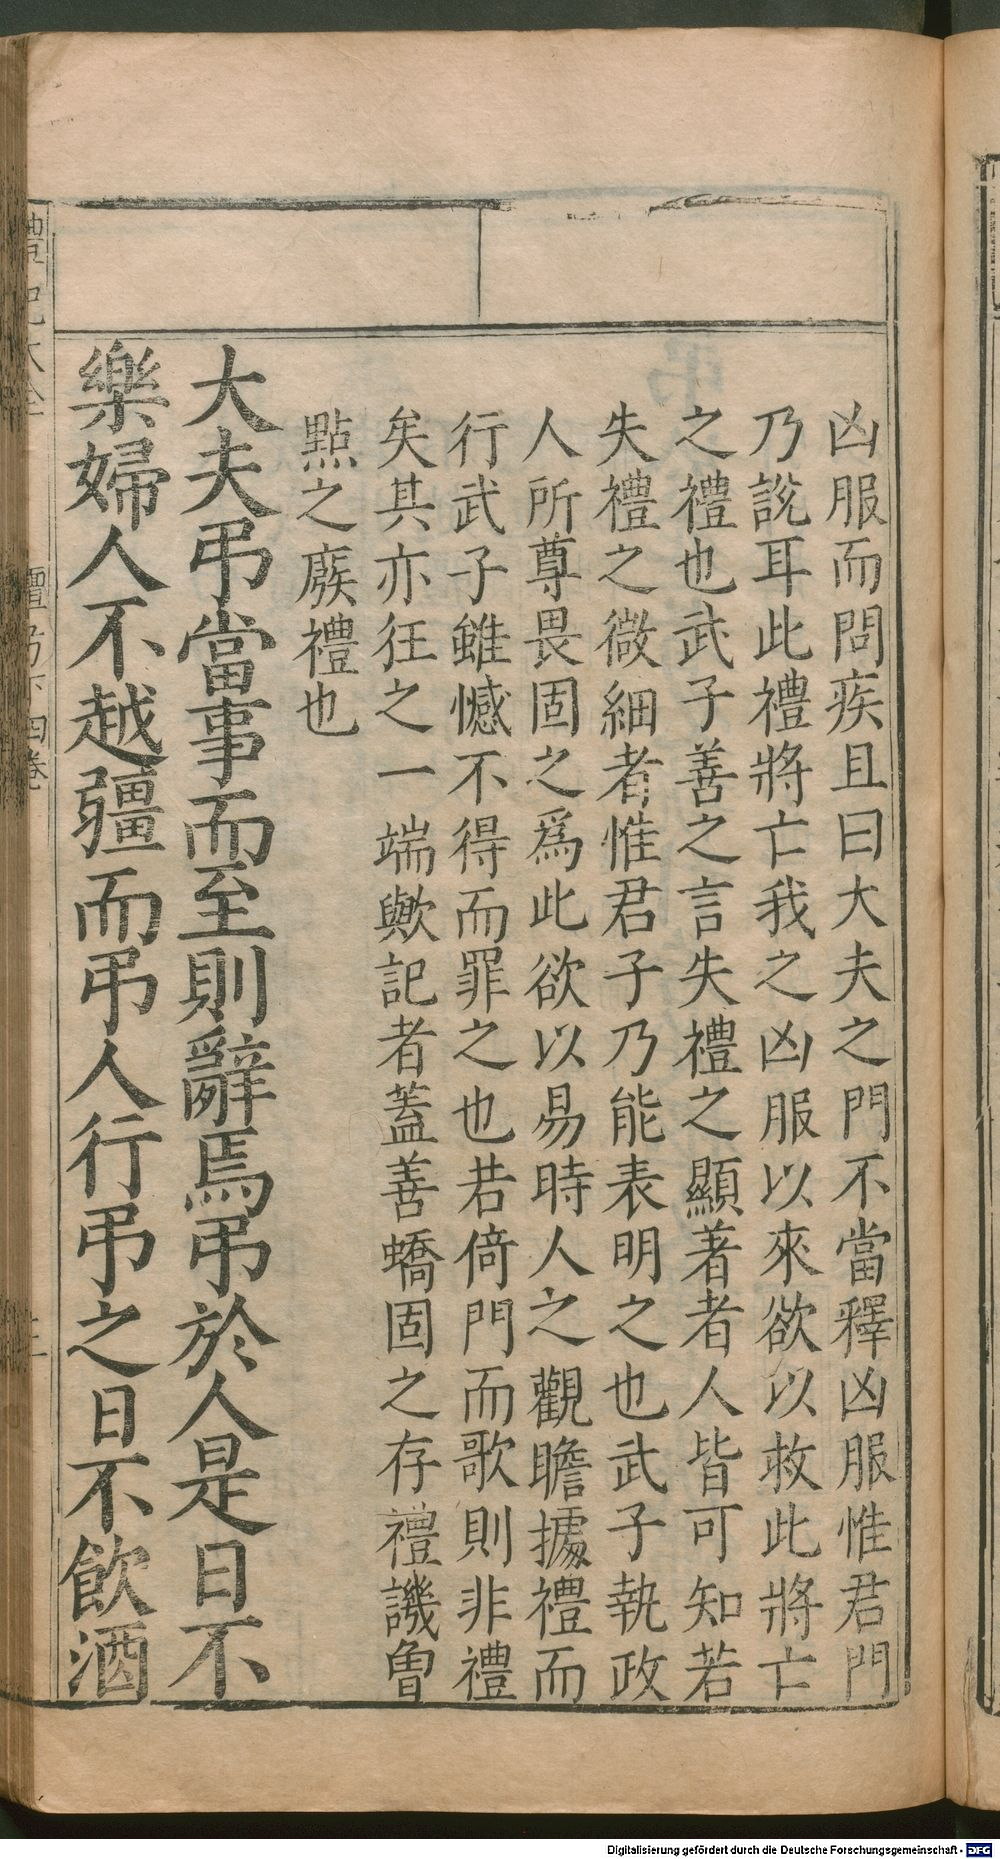 凶服而問疾且曰大夫之門不當釋凶服惟君門
乃說耳此禮將亡我之凶服以來欲以救此將亡
之禮也武子善之言失禮之顯著者人皆可知若
失禮之微細者惟君子乃能表明之也武子執政
人所尊畏固之爲此欲以易時人之觀瞻據禮而
行武子雖憾不得而罪之也若倚門而歌則非禮
矣其亦狂之一端歟記者蓋善蟜固之存禮譏魯
點之廢禮也
大夫弔當事而至則辭焉弔於人是日不
樂婦人不越疆而弔人行弔之日不飲酒
禮記大全 檀弓下四卷
Digitalisierung gefördert durch die Deutsche Forschungsgemeinschaft - DFG